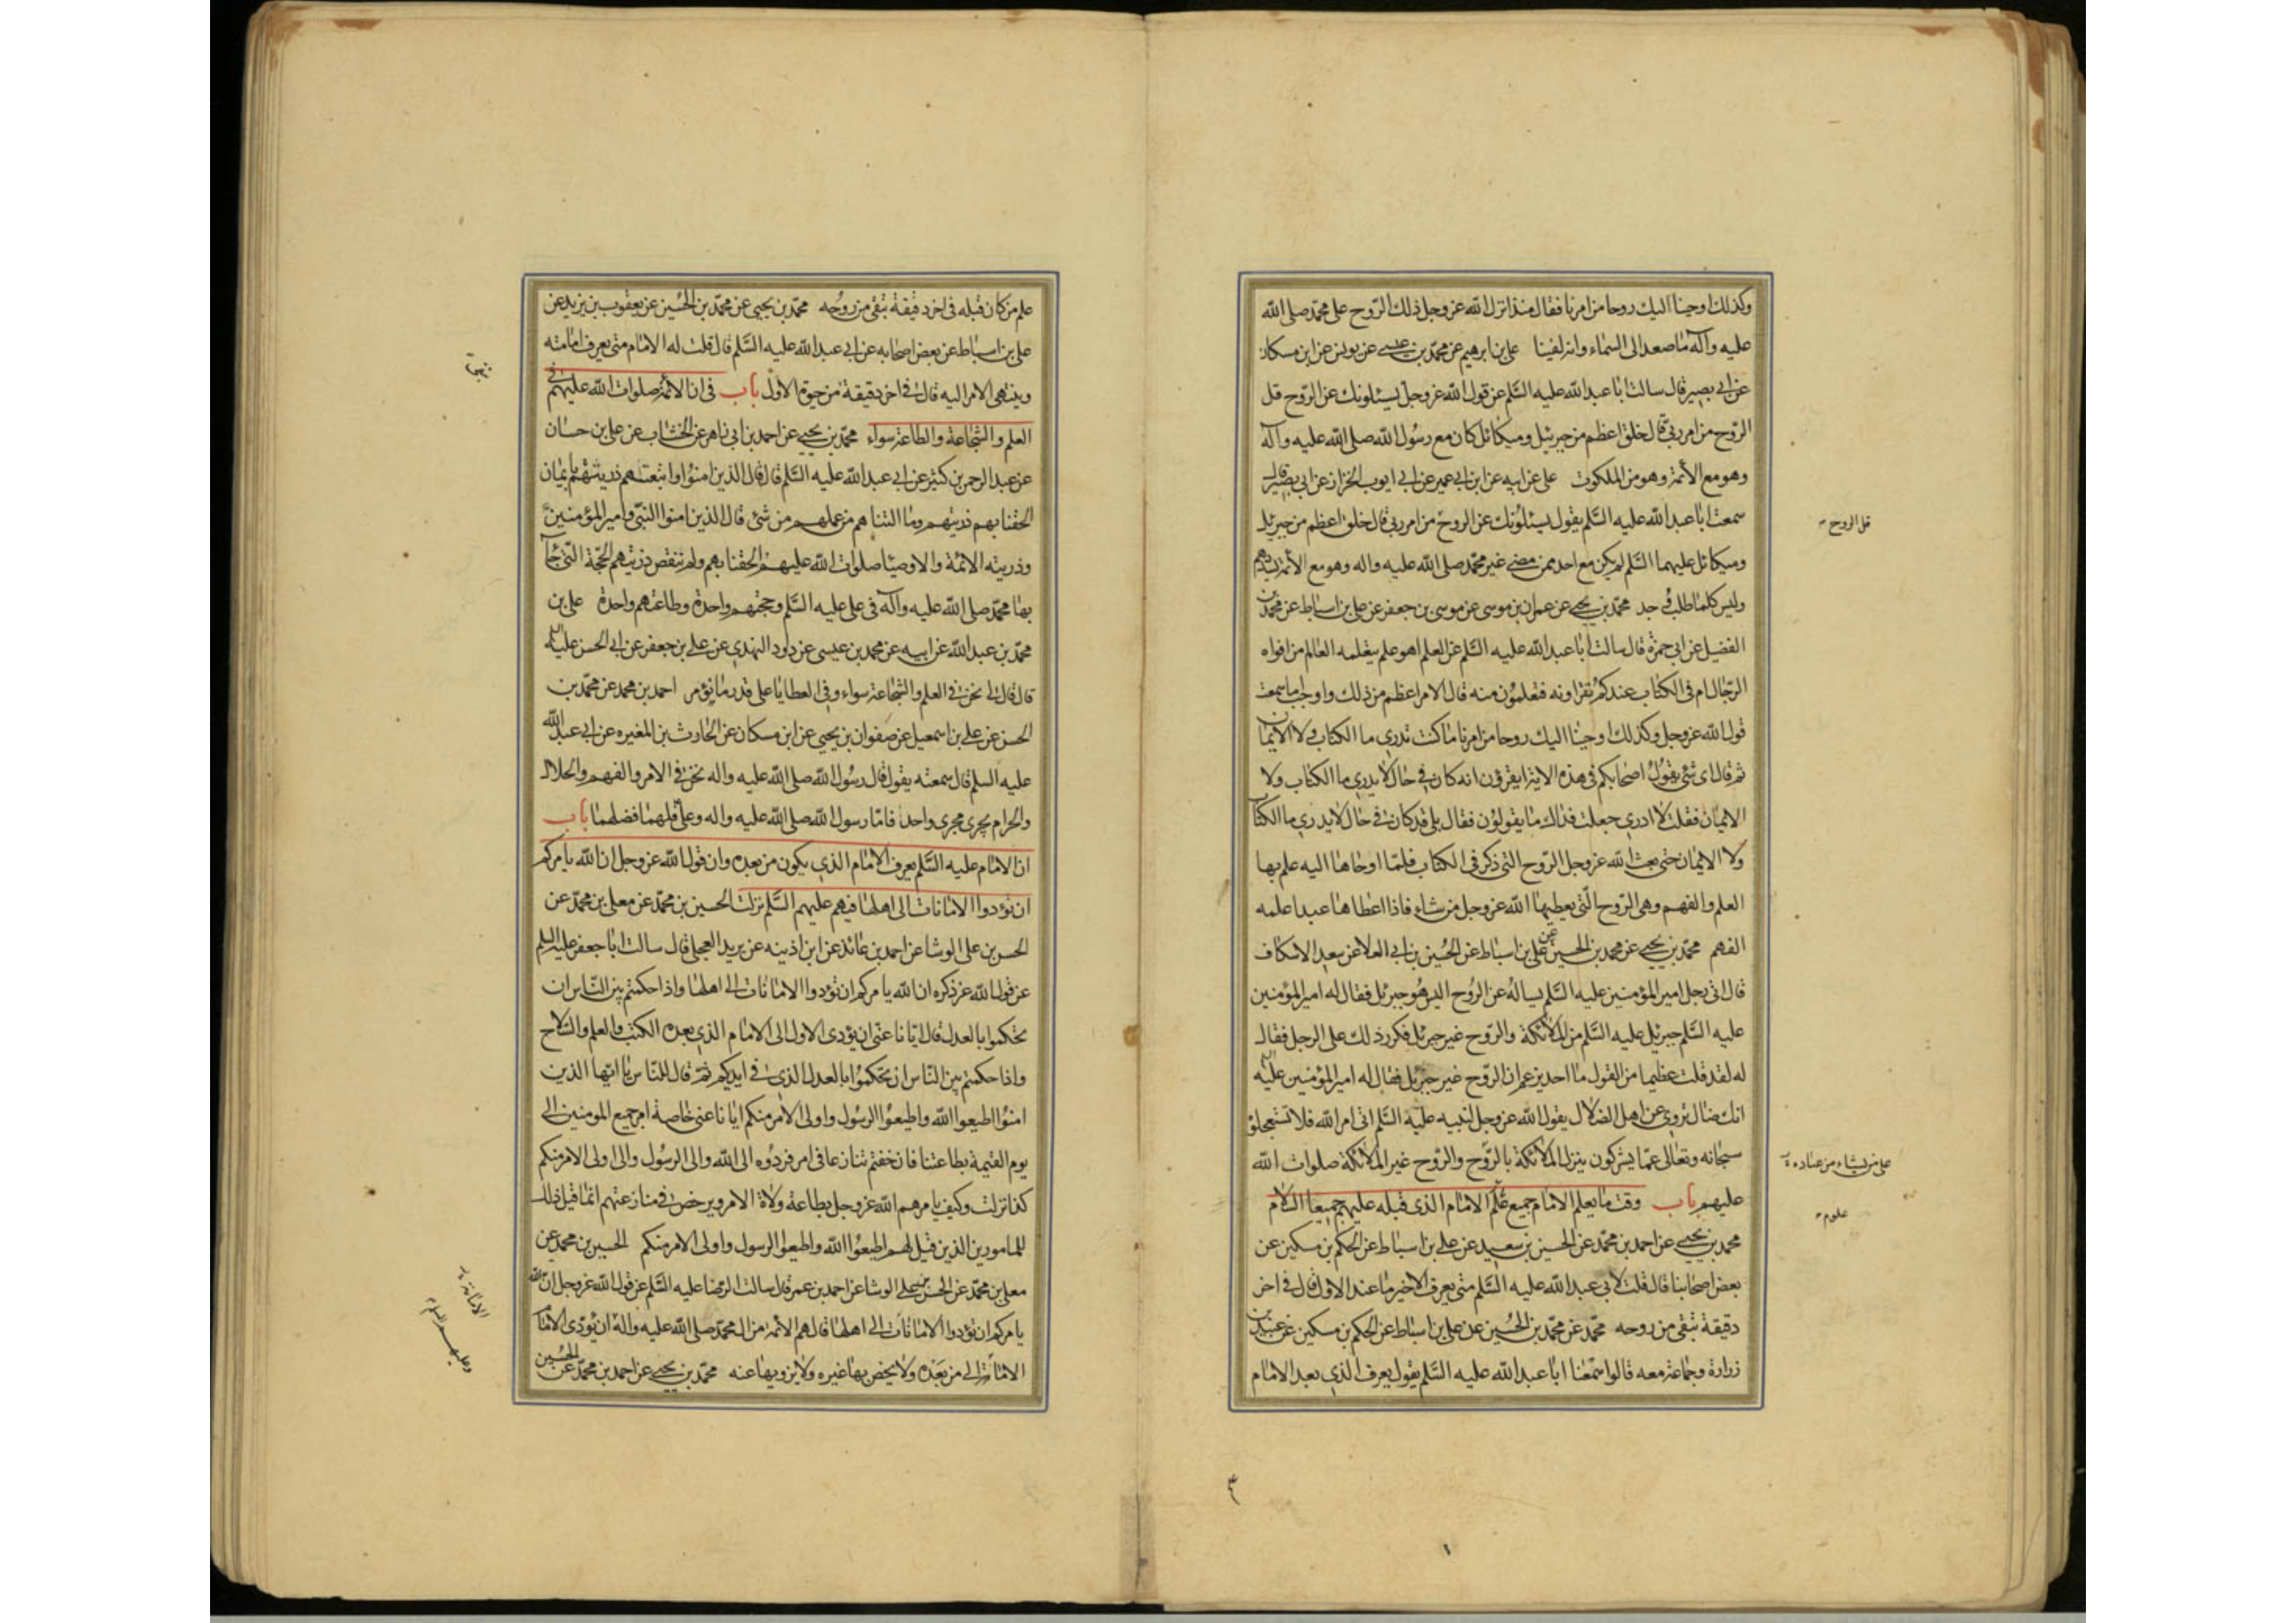 وكذلك اوحينا اليك روحا من امرنا فقال منذ انزل الله عز وجل ذلك الروح على محمد صلى الله
عليه وآله ما صعد الى السماء وانه لفينا على بن ابرهيم عن محمد بن عيسى عن يونس عن ابن مسكان
عن ابى بصير قال سالت ابا عبد الله عليه السلم عن قول الله عز وجل يسئلونك عن الروح قل
الروح من امر ربى قال خلق اعظم من جبرئيل وميكائل كان مع رسول الله صلى الله عليه وآله
وهو مع الأئمة وهو من الملكوت على عن ابيه عن ابن ابى عمير عن ابى ايوب الخزاز عن ابى بصير قال
سمعت ابا عبد الله عليه السلم يقول يسئلونك عن الروح من امر ربى قال خلق اعظم من جبرئيل
قل الروح
وميكائل عليهما السلم لم يكن مع احد ممن مضى غير محمد صلى الله عليه واله وهو مع الأئمة يسددهم
وليس كلما طلب وجد محمد بن يحيى عن عمران بن موسى عن موسى بن جعفر عن على بن اسباط عن محمد بن
الفضيل عن ابى حمزة قال سالت ابا عبد الله عليه السلم عن العلم اهو علم يتعلمه العالم من افواه
الرجال ام فى الكتاب عندكم تقراونه فتعلمون منه قال الامر اعظم من ذلك واوجب اما سمعت
قول الله عز وجل وكذلك اوحينا اليك روحا من امرنا ما كنت تدرى ما الكتاب ولا الايمان
ثم قال اى شئ يقول اصحابكم فى هذه الاية ايقرؤن انه كان فى حال لا يدرى ما الكتاب ولا
الايمان فقلت لا ادرى جعلت فداك ما يقولون فقال بلى قد كان فى حال لا يدرى ما الكتاب
ولا الايمان حتى بعث الله عز وجل الروح التى ذكر فى الكتاب فلما اوحاها اليه علم بها
العلم والفهم وهى الروح التى يعطيها الله عز وجل من شاء فاذا اعطاها عبدا علمه
الفهم محمد بن يحيى عن محمد بن الحسين عن على بن اسباط عن الحسين بن ابى العلا عن سعد الاسكاف
قال اتى رجل امير المؤمنين عليه السلم يساله عن الروح اليس هو جبرئل فقال له امير المؤمنين
عليه السلم جبرئل عليه السلم من الملائكة والروح غير جبرئل فكرر ذلك على الرجل فقال
له لقد قلت عظيما من القول ما احد يزعم ان الروح غير جبرئل فقال له امير المؤمنين عليه
انك ضال تروى عن اهل الضلال يقول الله عز وجل لنبيه عليه السلم اتى امر الله فلا تستعجلوه
سبحانه وتعالى عما يشركون ينزل الملائكة بالروح والروح غير الملائكة صلوات الله
على من يشاء من عباده
عليهم باب وقت ما يعلم الامام جميع علم الامام الذى قبله عليهم جميعا السلام
علوم
محمد بن يحيى عن احمد بن محمد عن الحسين بن سعيد عن على بن اسباط عن الحكم بن مسكين عن
بعض اصحابنا قال قلت لابى عبد الله عليه السلم متى يعرف الاخير ما عند الاول قال فى اخر
دقيقة تبقى من روحه محمد عن محمد بن الحسين عن على بن اسباط عن الحكم بن مسكين عن عبيد بن
زرارة وجماعة معه قالوا سمعنا ابا عبد الله عليه السلم يقول يعرف الذى بعد الامام
علم من كان قبله فى اخر دقيقة تبقى من روحه محمد بن يحيى عن محمد بن الحسين عن يعقوب بن يزيد عن
على بن اسباط عن بعض اصحابه عن ابى عبد الله عليه السلم قال قلت له الامام متى يعرف امامته
وينتهى الامر اليه قال فى اخر دقيقة من حيوة الأول باب فى ان الائمة صلوات الله عليهم فى
العلم والشجاعة والطاعة سواء محمد بن يحيى عن احمد بن ابى زاهر عن الخشاب عن على بن حسان
عن عبد الرحمن بن كثير عن ابى عبد الله عليه السلم قال قال الذين امنوا واتبعتهم ذريتهم بايمان
الحقنا بهم ذريتهم وما التناهم من عملهم من شئ قال الذين امنوا النبى وامير المؤمنين
وذريته الائمة والاوصيا صلوات الله عليهم الحقنا بهم ولم تنقص ذريتهم الحجة التى جآ
بها محمد صلى الله عليه وآله فى على عليه السلم وحجتهم واحدة وطاعتهم واحدة على بن
محمد بن عبد الله عن ابيه عن محمد بن عيسى عن داود النهدى عن على بن جعفر عن ابى الحسن عليه السلم
قال قال لى نحن فى العلم والشجاعة سواء وفى العطايا على قدر ما نؤمر احمد بن محمد عن محمد بن
الحسن عن على بن اسمعيل عن صفوان بن يحيى عن ابن مسكان عن الحارث بن المغيره عن ابى عبد الله
عليه السلم قال سمعته يقول قال رسول الله صلى الله عليه واله نحن فى الامر والفهم والحلال
والحرام يجرى مجرى واحدا فاما رسول الله صلى الله عليه واله وعلى فلهما فضلهما باب
ان الامام عليه السلم يعرف الامام الذى يكون من بعده وان قول الله عز وجل ان الله يامركم
ان تؤدوا الامانات الى اهلها فيهم عليهم السلم نزلت الحسين بن محمد عن معلى بن محمد عن
الحسن بن على الوشا عن احمد بن عائذ عن ابن اذينه عن بريد العجلى قال سالت ابا جعفر عليه السلم
عن قول الله عز ذكره ان الله يامركم ان تؤدوا الامانات الى اهلها واذا حكمتم بين الناس ان
تحكموا بالعدل قال ايانا عنى ان يؤدى الاول الى الامام الذى بعده الكتب والعلم والسلاح
واذا حكمتم بين الناس ان تحكموا بالعدل الذى فى ايديكم ثم قال للناس يا ايها الذين
امنوا اطيعوا الله واطيعوا الرسول واولى الامر منكم ايانا عنى خاصة امر جميع المومنين الى
يوم القيمة بطاعتنا فان خفتم تنازعا فى امر فردوه الى الله والى الرسول والى اولى الامر منكم
كذا نزلت وكيف يامرهم الله عز وجل بطاعة ولاة الامر ويرخص فى منازعتهم انما قيل ذلك
للمامورين الذين قيل لهم اطيعوا الله واطيعوا الرسول واولى الامر منكم الحسين بن محمد عن
معلى بن محمد عن الحسن بن على الوشا عن احمد بن عمر قال سالت الرضا عليه السلم عن قول الله عز وجل ان الله
يامركم ان تؤدوا الامانات الى اهلها قال هم الأئمة من ال محمد صلى الله عليه وآله ان يؤدى الامام
الامانة الى من بعده ولا يخص بها غيره ولا يزويها عنه محمد بن يحيى عن احمد بن محمد عن الحسين